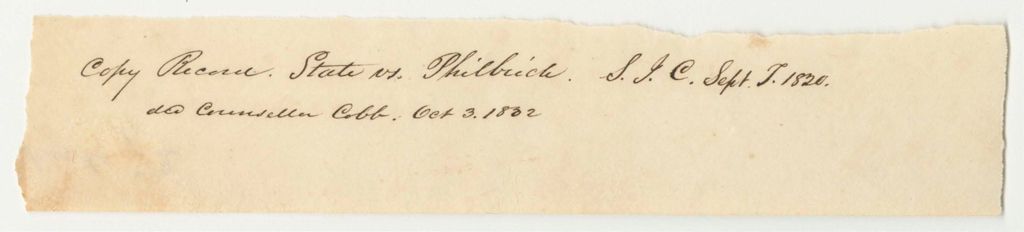 Copy Record. State vs. Philbrick. S. J. C. Sept. T. 1820.
dd Counsellor Cobb. Oct 3. 1832